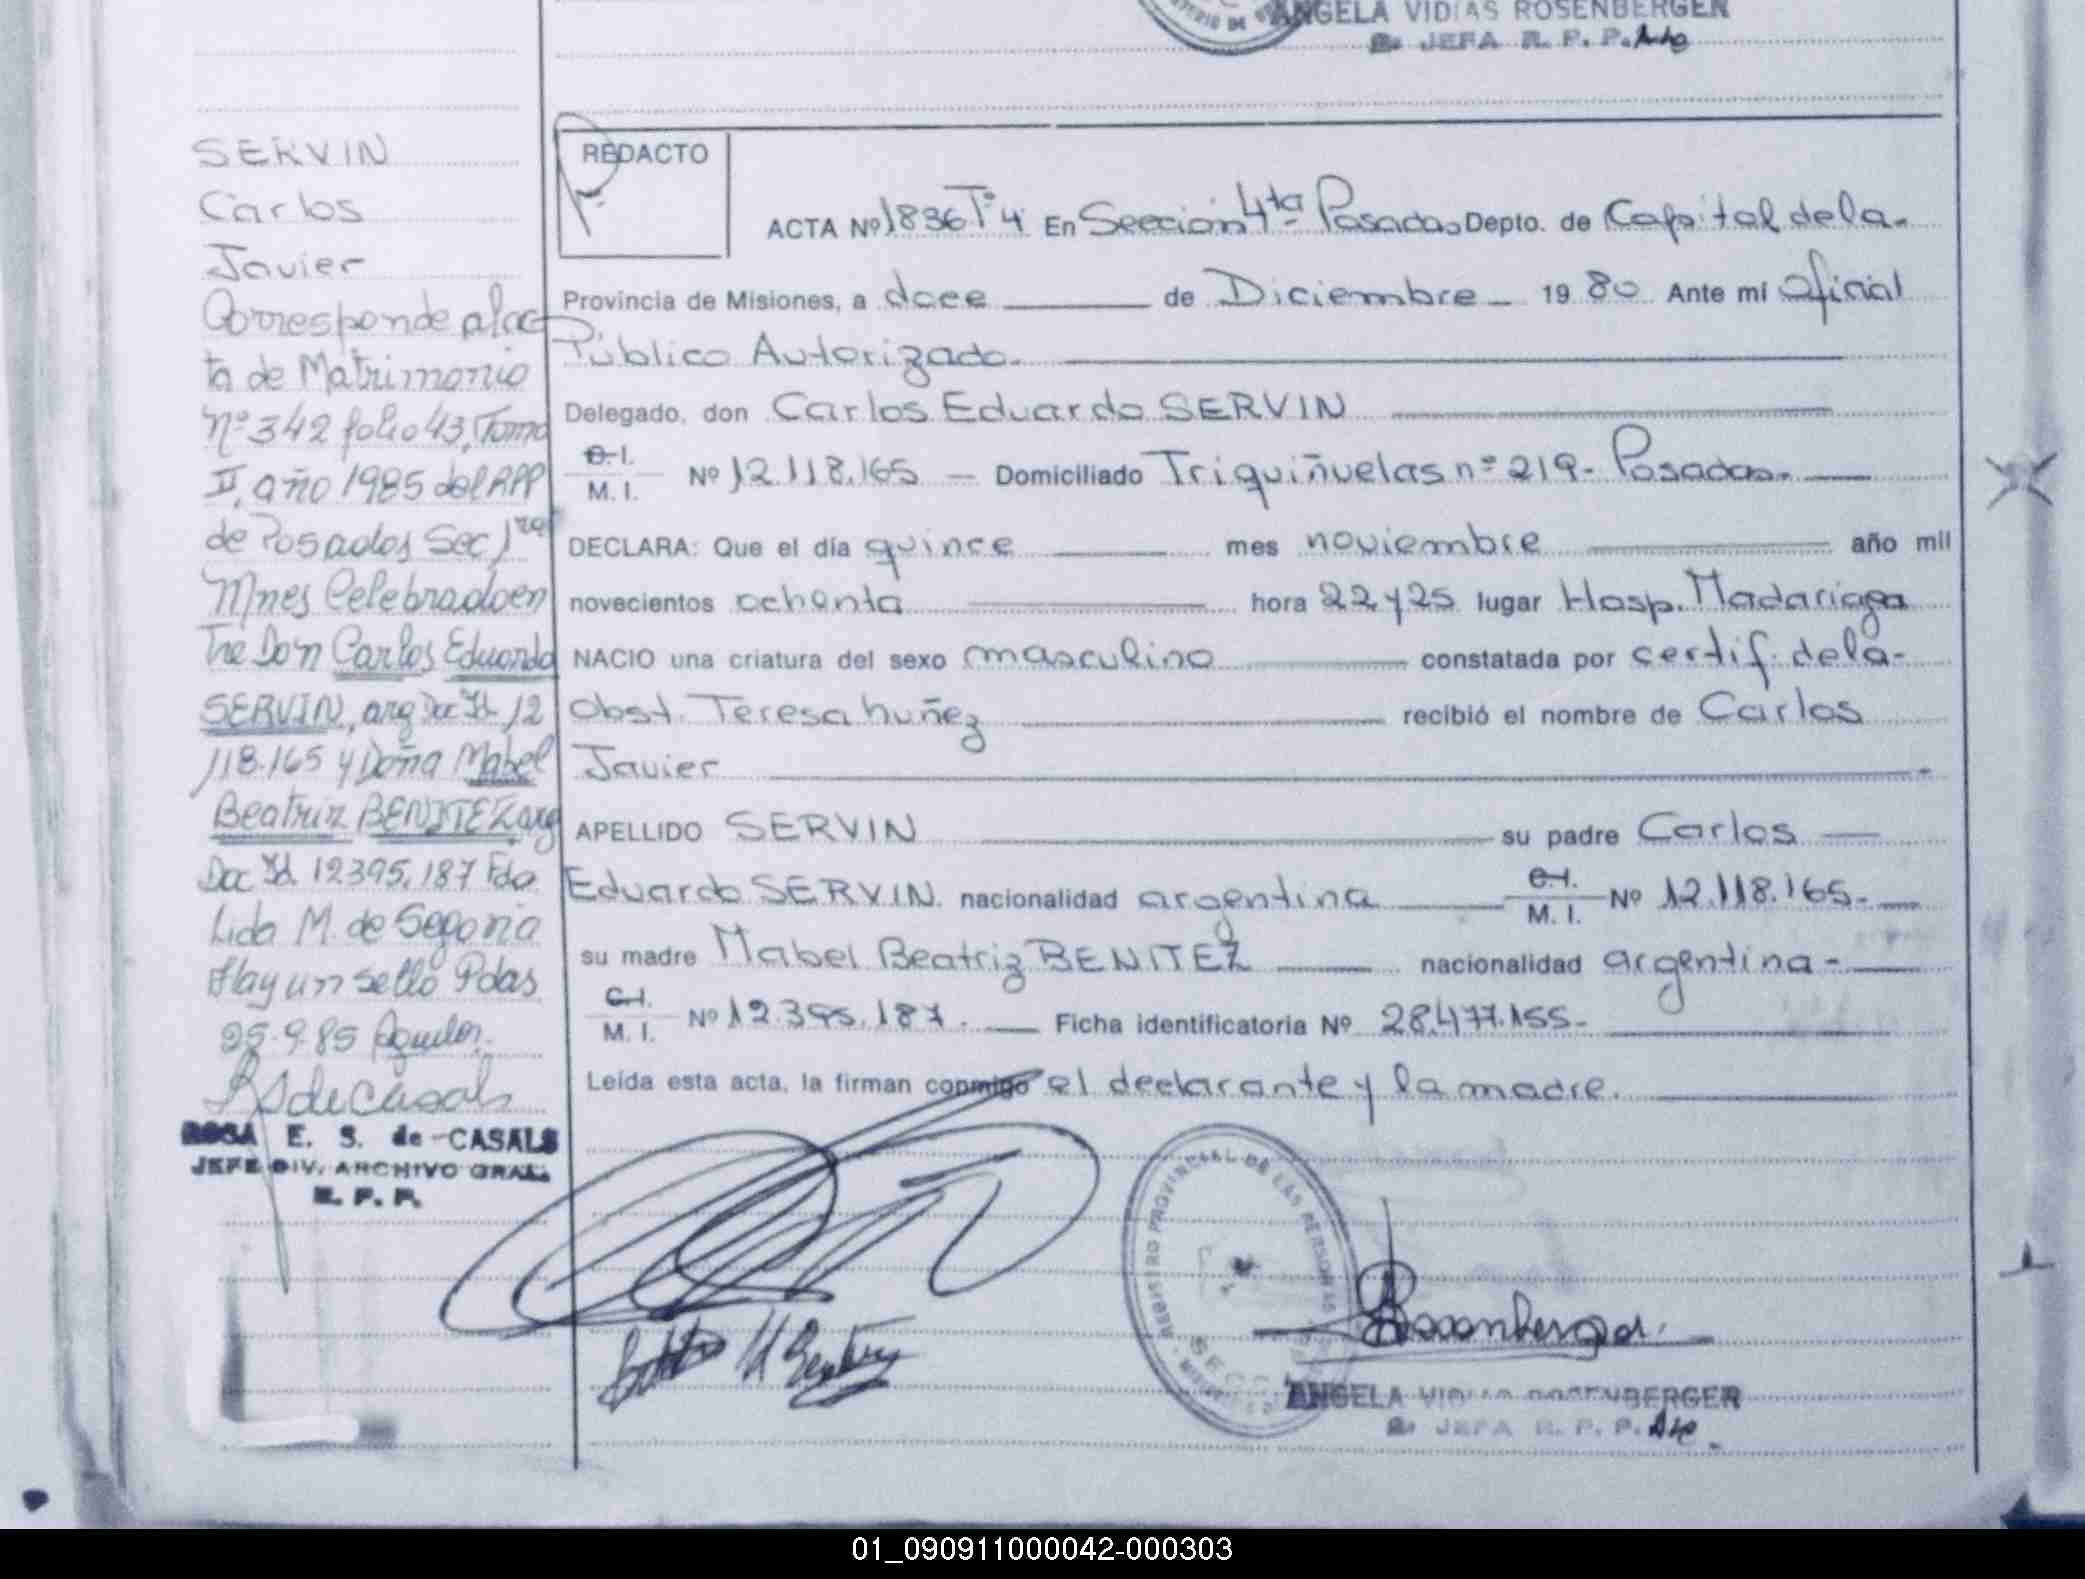 ANGELA VIDIAS ROSENBERGER
JEFA R. P. P.
SERVIN
Carlos
Javier
Corresponde al ac
ta de Matrimonio
Nº 342 folio 43, Tomo
II, año 1985 del RPP
de Posadas Sec 1ra
Mnes Celebrado en
tre Don Carlos Eduardo
SERVIN, arg Doc Id 12
118.165 y Doña Mabel
Beatriz BENITEZ arg
Doc Id. 12395.187 Fdo
Lida M. de Segovia
Hay un sello Pdas
25.9.85 Aguilar.
RSdeCasals
ROSA E. S. de CASALS
JEFE DIV. ARCHIVO GRAL.
R. P. P.
REDACTO
ACTA Nº 1836 Tº 4 En Sección 4ta Posadas Depto. de Capital de la
Provincia de Misiones, a doce de Diciembre 19 80 Ante mí Oficial
Público Autorizado.
Delegado, don Carlos Eduardo SERVIN
C. I.
M. I. Nº 12.118.165 Domiciliado Triquiñuelas nº 219- Posadas.
DECLARA: Que el día quince mes noviembre año mil
novecientos ochenta hora 22 y 25 lugar Hosp. Madariaga
NACIO una criatura del sexo masculino constatada por certif. de la
Obst. Teresa Nuñez recibió el nombre de Carlos
Javier
APELLIDO SERVIN su padre Carlos
Eduardo SERVIN. nacionalidad argentina C. I. M. I. Nº 12.118.165.
su madre Mabel Beatriz BENITEZ nacionalidad argentina
C. I.
M. I. Nº 12.395.187. Ficha identificatoria Nº 28.477.155-
Leída esta acta, la firman conmigo el declarante y la madre.
REGISTRO PROVINCIAL DE LAS PERSONAS
Rosenberger
ANGELA VIDIAS ROSENBERGER
JEFA R. P. P.
01_090911000042-000303